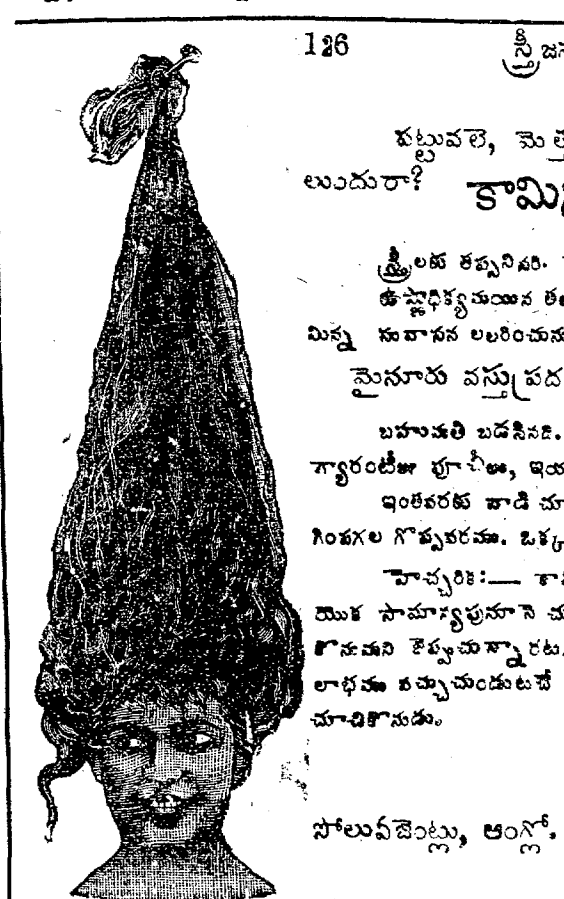 126 స్త్రీజన
పట్టువలె, మెత్త
లుందురా? కామిని
స్త్రీలకు తప్పనిసరి.
ఉష్ణాధిక్యమయిన తల
మిన్న సువాసన లలరించును
మైసూరు వస్తుప్రద
బహుమతి బడసినది.
గ్యారంటీలు భూచీలు, ఇయ
ఇంతవరకు వాడి చూ
గింపగల గొప్పవరము. ఒక్క
హెచ్చరిక:— కా
యొక సామాన్యపునూనె చు
కొనుమని జెప్పుచున్నారట.
లాభము వచ్చుచుండుటచే
చూచికొనుడు.
సోలువజెంట్లు, ఆంగ్లో.